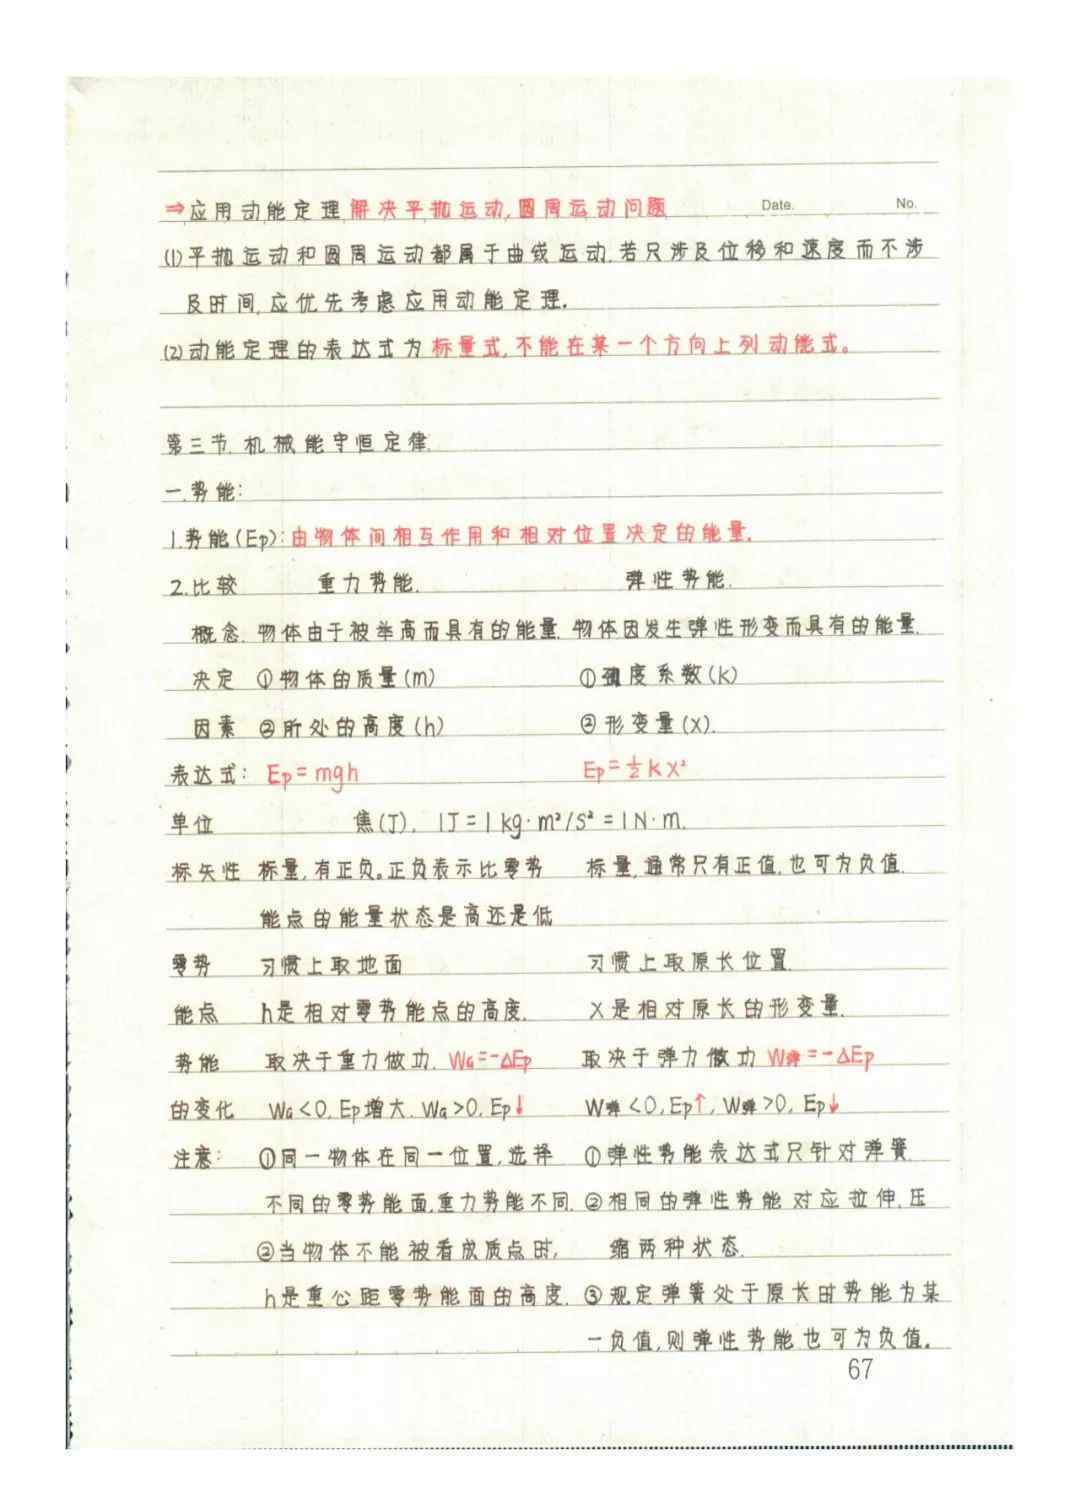 ⇒应用动能定理解决平抛运动,圆周运动问题 Date. No.
(1)平抛运动和圆周运动都属于曲线运动.若只涉及位移和速度而不涉
及时间,应优先考虑应用动能定理.
(2)动能定理的表达式为标量式,不能在某一个方向上列动能式。
第三节.机械能守恒定律.
一.势能:
1.势能(Ep):由物体间相互作用和相对位置决定的能量.
2.比较 重力势能. 弹性势能.
概念. 物体由于被举高而具有的能量. 物体因发生弹性形变而具有的能量.
决定 ①物体的质量(m) ①劲度系数(k)
因素 ②所处的高度(h) ②形变量(x).
表达式: Ep=mgh Ep=½kx²
单位 焦(J). 1J=1kg·m²/s²=1N·m.
标矢性 标量,有正负。正负表示比零势 标量,通常只有正值,也可为负值.
能点的能量状态是高还是低
零势 习惯上取地面 习惯上取原长位置.
能点 h是相对零势能点的高度. x是相对原长的形变量.
势能 取决于重力做功. WG=-ΔEp 取决于弹力做功 W弹=-ΔEp
的变化 WG<0,Ep增大. WG>0,Ep↓ W弹<0,Ep↑,W弹>0,Ep↓
注意: ①同一物体在同一位置,选择 ①弹性势能表达式只针对弹簧.
不同的零势能面,重力势能不同. ②相同的弹性势能对应拉伸.压
②当物体不能被看成质点时, 缩两种状态.
h是重心距零势能面的高度. ③规定弹簧处于原长时势能为某
一负值,则弹性势能也可为负值。
67